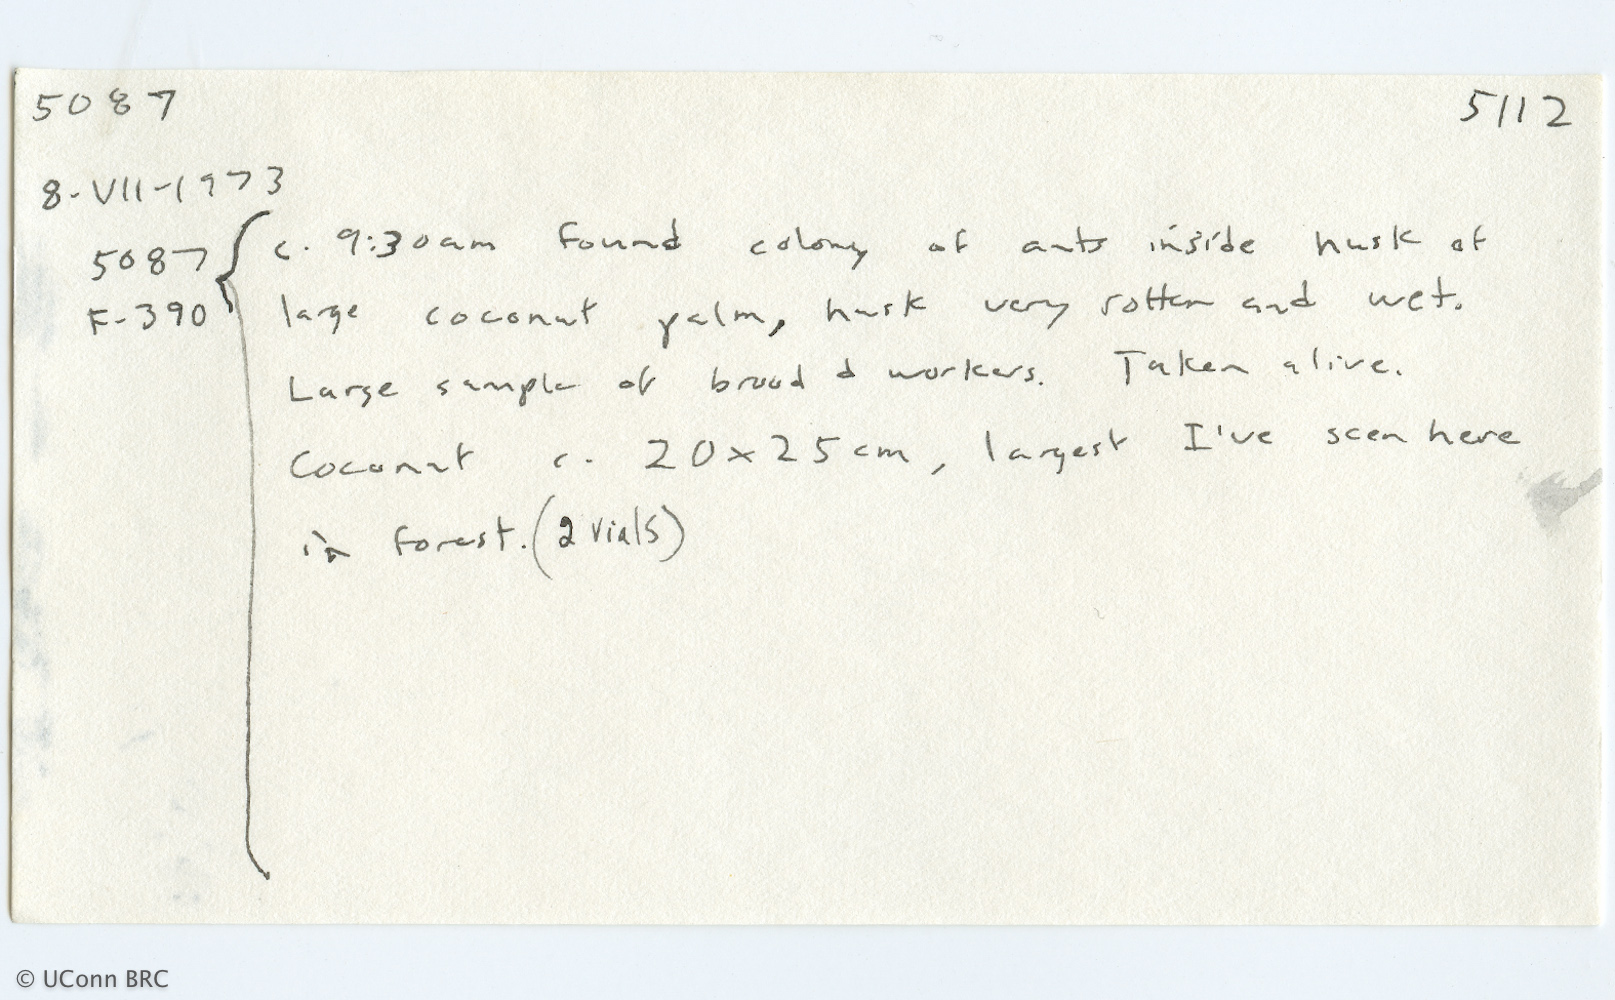 5087 5112
8-VII-1973
5087
F-390
c. 9:30am found colony of ants inside husk of
large coconut palm, husk very rotten and wet.
Large sample of brood & workers. Taken alive.
Coconut c. 20x25cm, largest I've seen here
in forest. (2 vials)
© UConn BRC